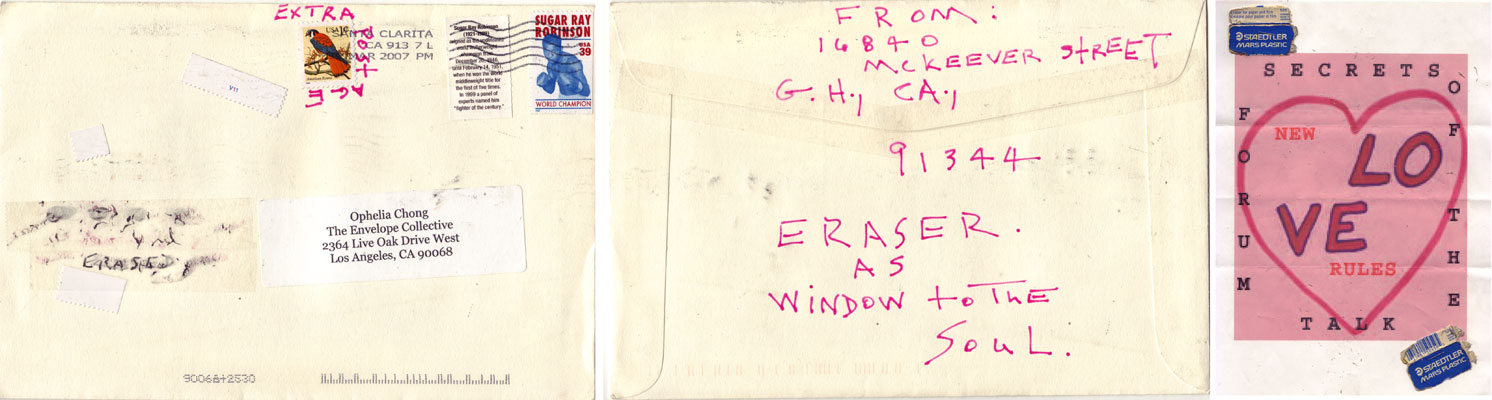 EXTRA
POSTAGE
USA 1¢
SANTA CLARITA
CA 913 7 L
MAR 2007 PM
Sugar Ray Robinson
(1921-1989)
reigned as the undisputed
world welterweight
champion from
December 20, 1946,
until February 14, 1951,
when he won the world
middleweight title for
the first of five times.
In 1999 a panel of
experts named him
"fighter of the century."
SUGAR RAY
ROBINSON
USA
39
WORLD CHAMPION
V11
ERASED
Ophelia Chong
The Envelope Collective
2364 Live Oak Drive West
Los Angeles, CA 90068
9006842530
FROM:
16840
MCKEEVER STREET
G.H., CA.,
91344
ERASER.
AS
WINDOW to THE
SOUL.
STAEDTLER
MARS PLASTIC
SECRETS
OF THE
FORUM
TALK
NEW
LO
VE
RULES
STAEDTLER
MARS PLASTIC